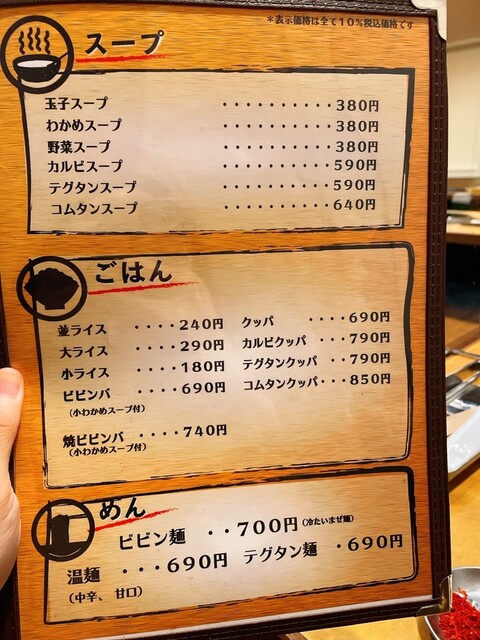 ＊表示価格は全て10％税込価格です
スープ
玉子スープ ・・・・・・・・・・380円
わかめスープ ・・・・・・・・・・380円
野菜スープ ・・・・・・・・・・380円
カルビスープ ・・・・・・・・・・590円
テグタンスープ ・・・・・・・・・・590円
コムタンスープ ・・・・・・・・・・640円
ごはん
並ライス ・・・・240円
大ライス ・・・・290円
小ライス ・・・・180円
ビビンバ ・・・・690円
（小わかめスープ付）
焼ビビンバ ・・・・740円
（小わかめスープ付）
クッパ ・・・・690円
カルビクッパ ・・・・790円
テグタンクッパ ・・・・790円
コムタンクッパ・・・850円
めん
ビビン麺 ・・700円（冷たいまぜ麺）
温麺 ・・・690円 テグタン麺 ・690円
（中辛、甘口）